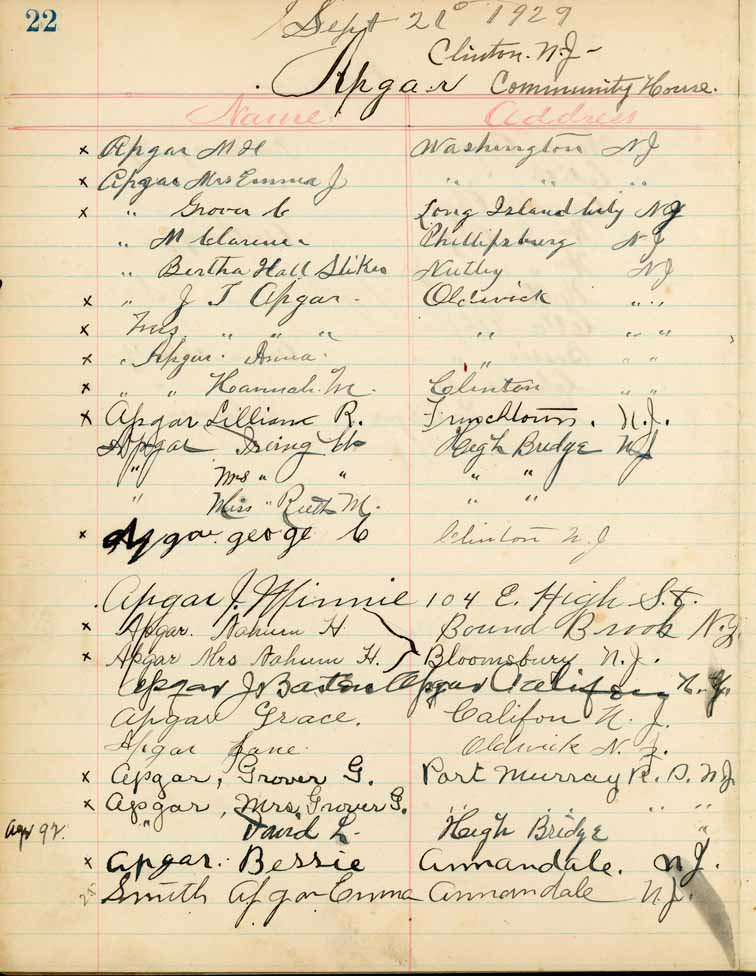 22
Sept 21º 1929
Clinton. N.J-
Apgar Community House.
Name. Address
x Apgar M H Washington NJ
x Apgar Mrs Emma J " " "
x " Grover C Long Island City NY
" M Clarence Phillipsburg NJ
" Bertha Hall Stiles Nutley NJ
x " J T Apgar. Oldwick " "
x Mrs. " " " " " "
x " Apgar. Anna. " " "
x " " Hannah. M. Clinton " "
x Apgar Lillian R. Frenchtown. N.J.
Apgar Irving W High Bridge NJ
" Mrs " " " "
" Miss " Ruth M. " "
x Apgar george C Clinton N J
Apgar J. Minnie 104 E. High St.
x Apgar. Nahum H Bound Brook N.J.
x Apgar Mrs Nahum H. Bloomsbury N.J.
Apgar J. Barton Apgar Califon N.J.
Apgar Grace. Califon N. J.
Apgar Jane Oldwick N. J.
x Apgar, Grover G. Port Murray R. D. N.J.
x Apgar, Mrs, Grover G. " " " "
age 92. " David L. High Bridge "
x Apgar. Bessie Annandale. N.J.
Smith Apgar Emma Annandale N.J.